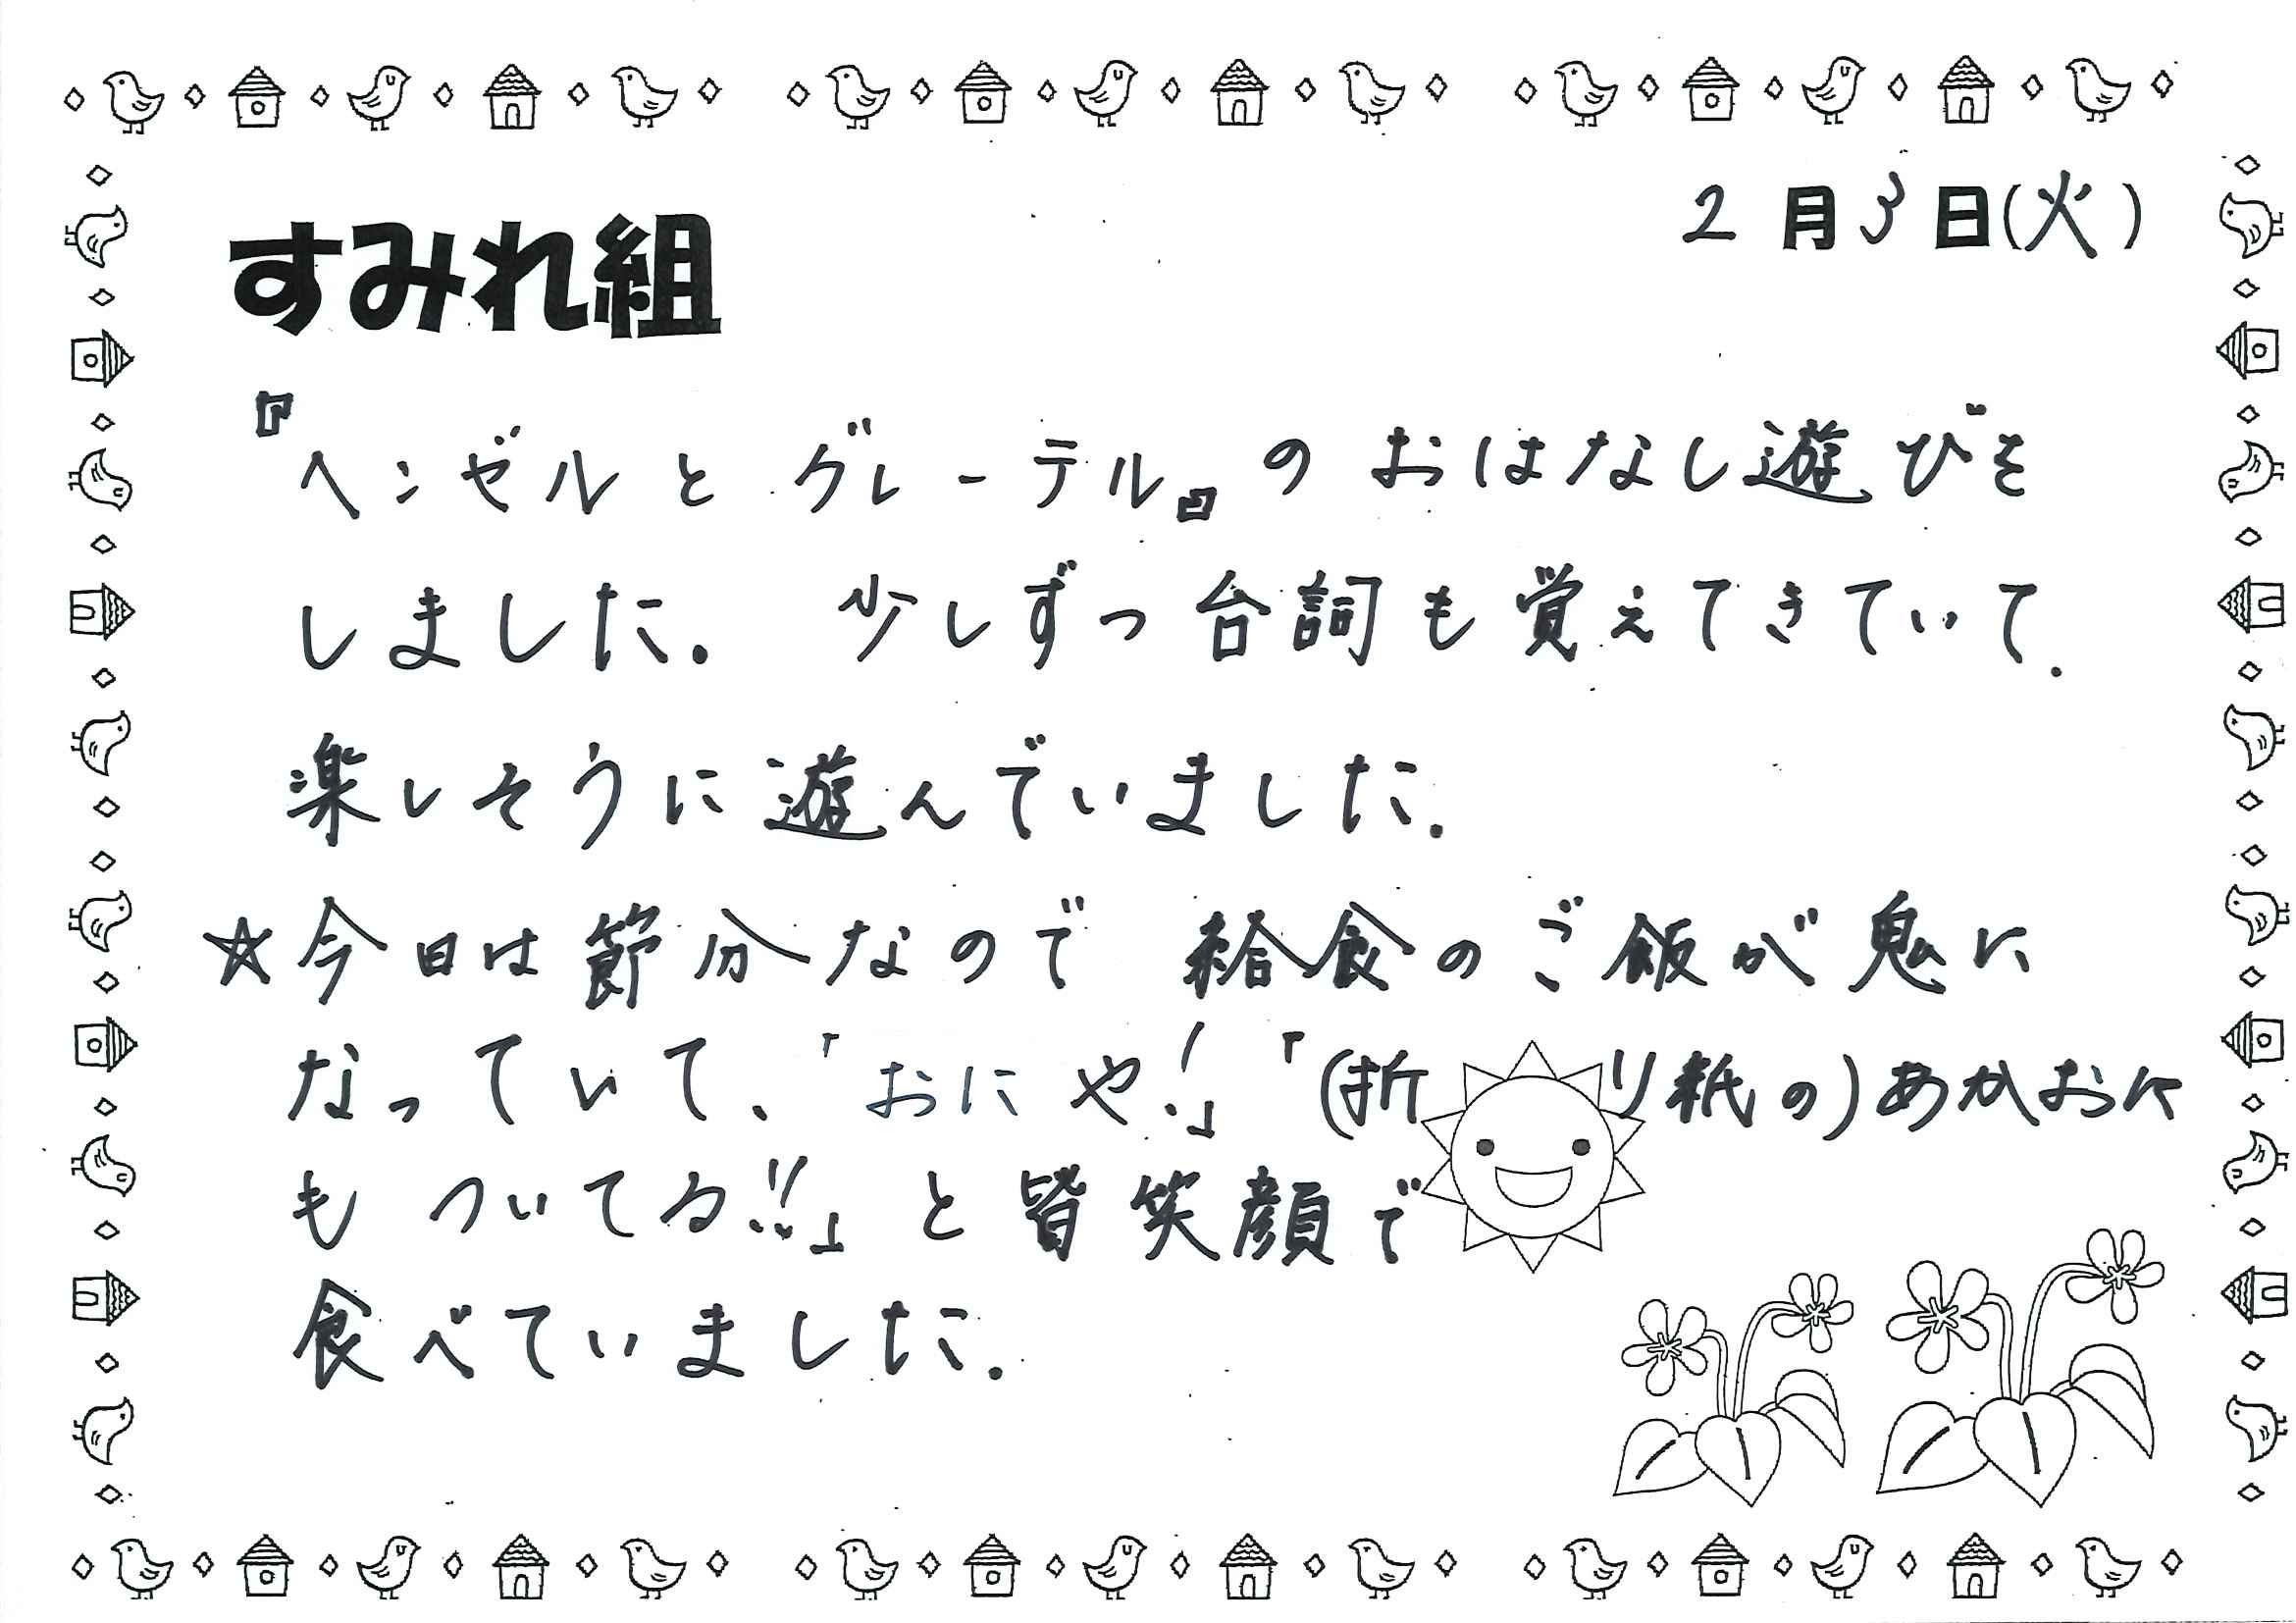 2月3日(火)
すみれ組
『ヘンゼルとグレーテル』のおはなし遊びを
しました。少しずつ台詞も覚えてきていて、
楽しそうに遊んでいました。
☆今日は節分なので給食のご飯が鬼に
なっていて、「おにや!」「(折り紙の)あかおに
もついてる!!」と皆笑顔で
食べていました。